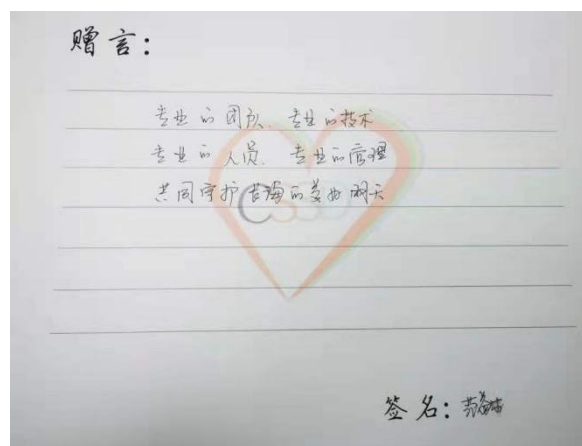 赠言：
专业的团队 专业的技术
专业的人员 专业的管理
共同守护青海的美好明天
CSSD
签名：